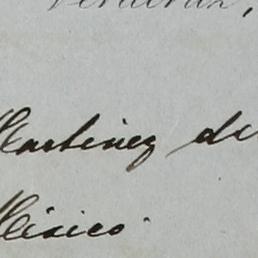 Veracruz,
Martinez de
México.